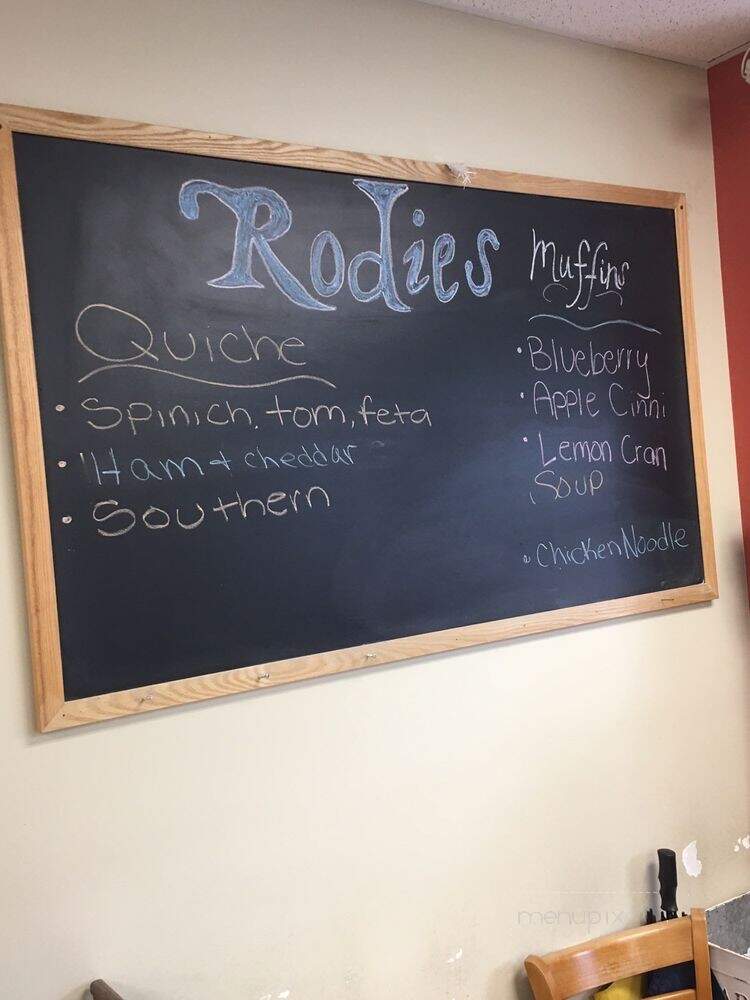 Rodies
Quiche
• Spinich, tom, feta
• Ham + cheddar
• Southern
Muffins
• Blueberry
• Apple Cinni
• Lemon Cran
Soup
• Chicken Noodle
menupix